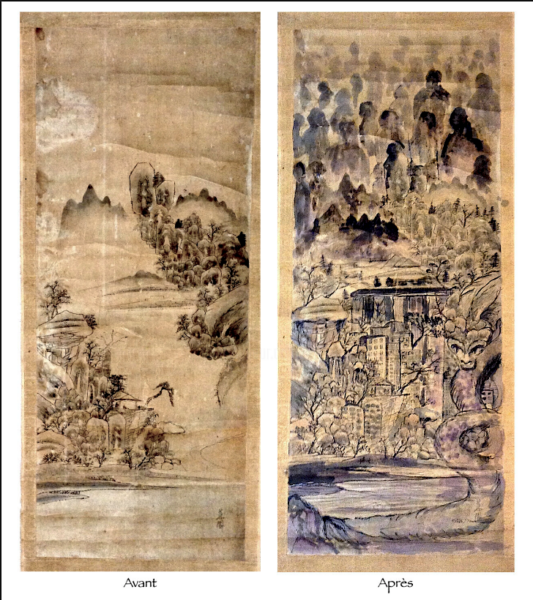 Avant
Après